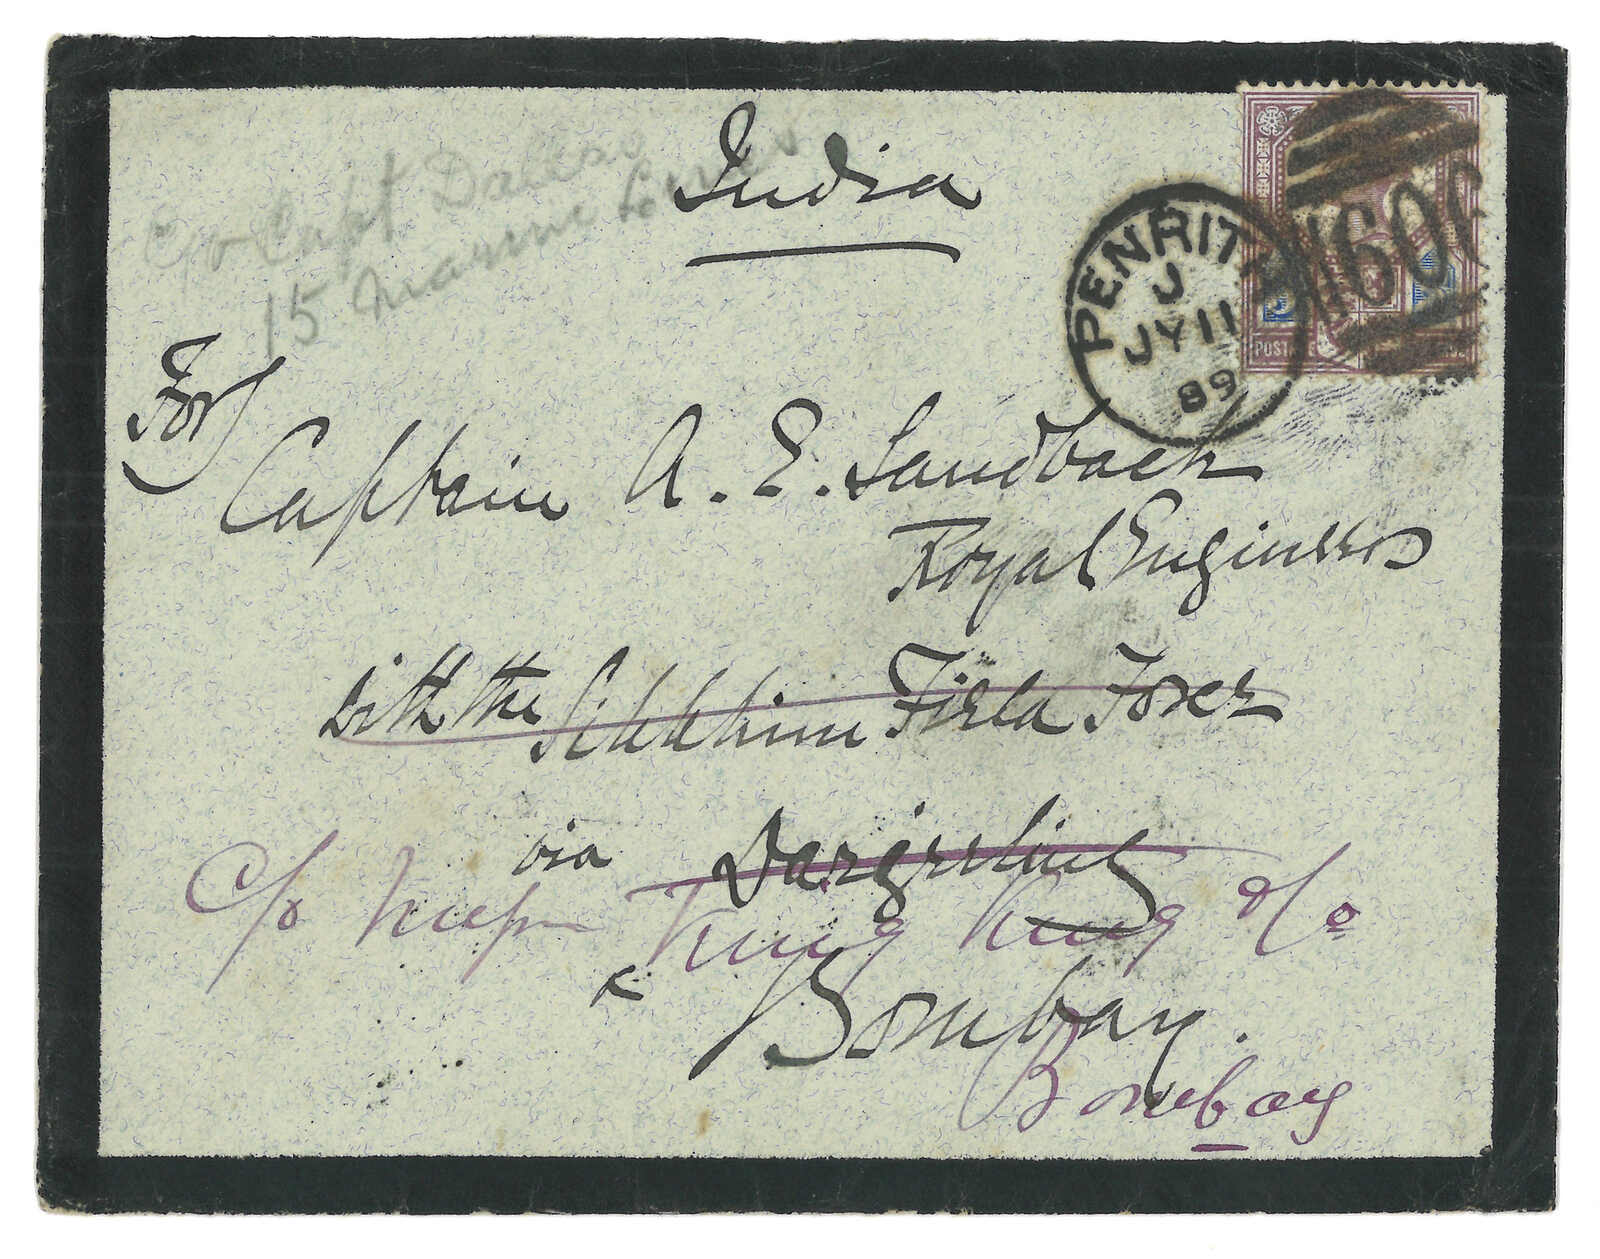 India
c/o Capt
15 Marine Lines
PENRITH
J
JY 11
89
606
POSTAGE
For
Captain A. E. Sandbach
Royal Engineers
with the Sikkhim Field Force
via Darjeeling
c/o Messrs King King & Co
& Bombay.
Bombay